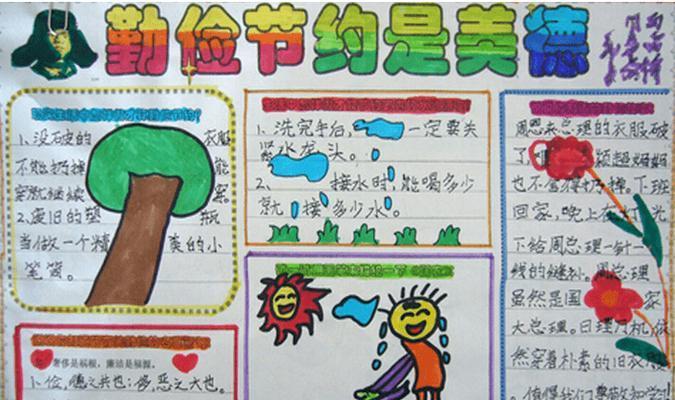 勤俭节约是美德
1、没破的衣服
不能扔掉能
穿就继续穿。
2、废旧的塑瓶
当做一个精美的小
笔筒。
奢侈是祸根，廉洁是福源。
1、俭，德之共也；侈，恶之大也。
1、洗完手后，一定要关
紧水龙头。
2、接水时，能喝多少
就接多少水。
周恩来总理的衣服破
了，颖超妈妈
也不舍得扔掉。下班
回家，晚上在灯光
下给周总理一针一
线的缝补。周总理
虽然是国家
大总理。日理万机，依
然穿着朴素的旧衣服
。值得我们尊敬和学习